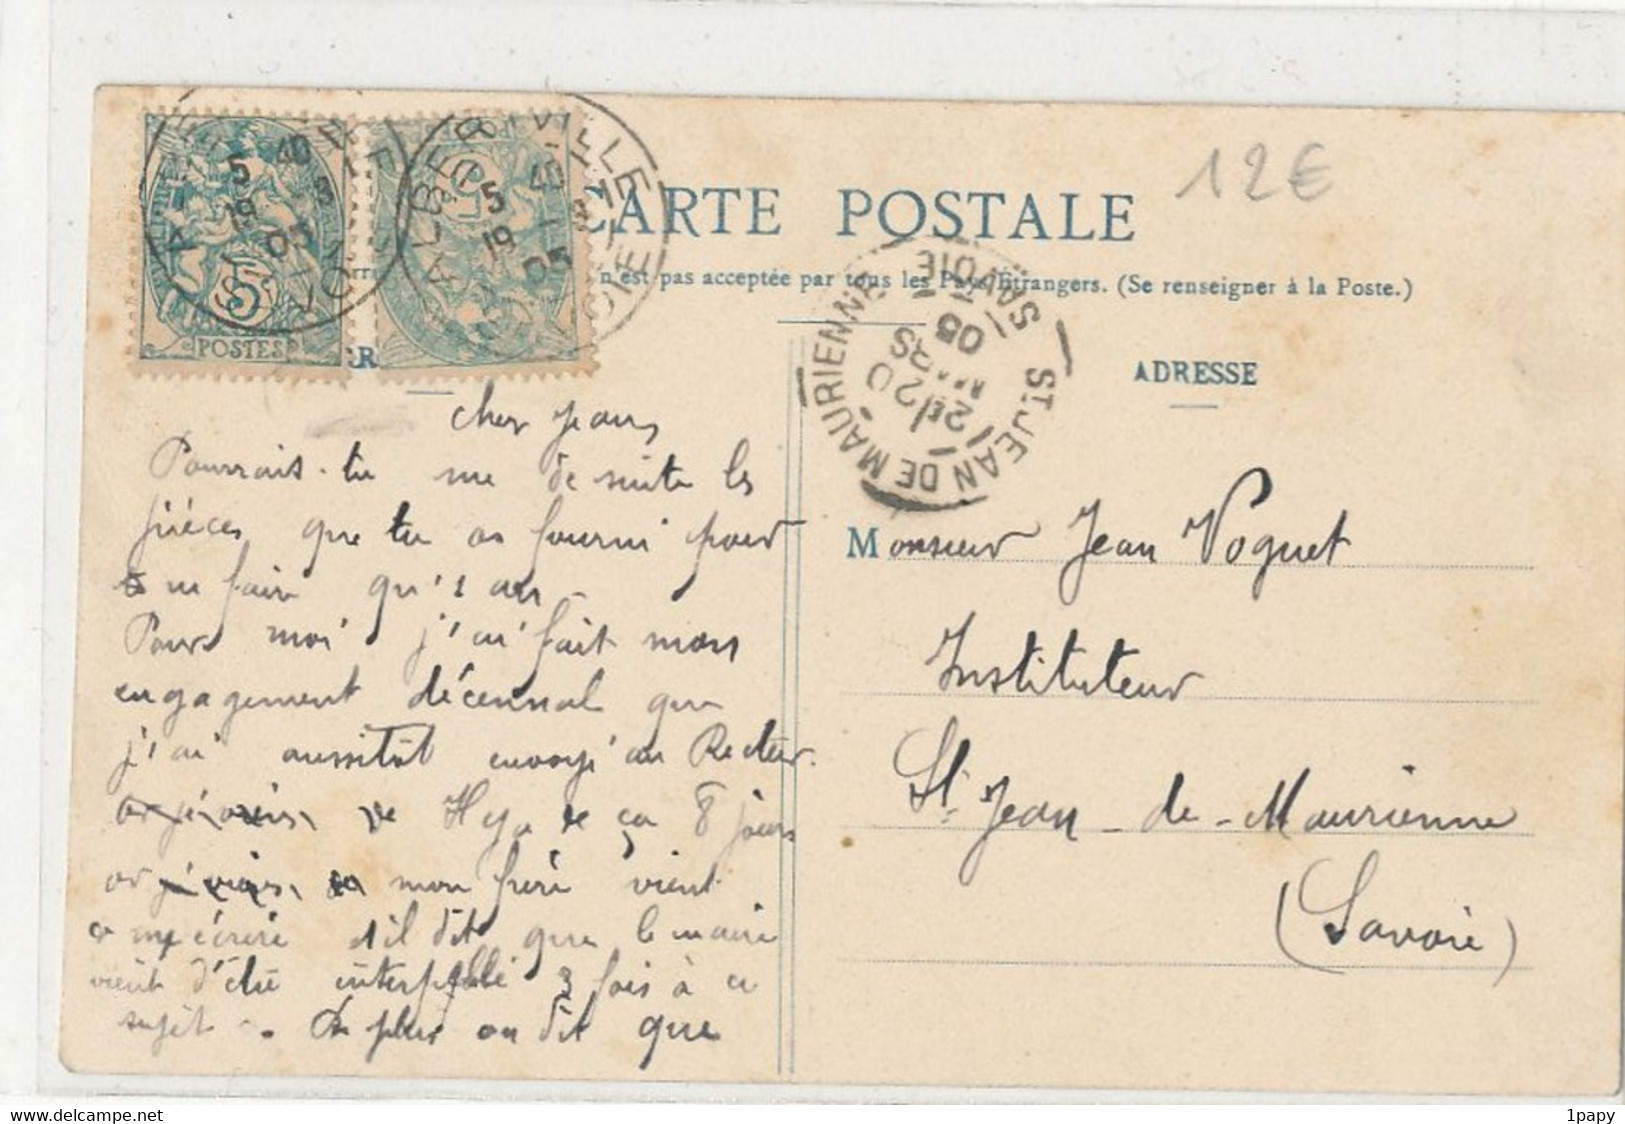 12€
CARTE POSTALE
n'est pas acceptée par tous les Pays Étrangers. (Se renseigner à la Poste.)
ALBERTVILLE
SAVOIE
5 40
19 3
05
5
POSTES
ALBERTVILLE
SAVOIE
5 40
19 3
05
ST JEAN DE MAURIENNE
SAVOIE
20
05
ADRESSE
Cher Jean,
Pourrais-tu me de suite les
pièces que tu as fourni pour
ne faire qu'1 an
Pour moi j'ai fait mon
engagement décennal que
j'ai aussitôt envoyé au Recteur.
Il y a de ça 8 jours
or mon frère vient
m'écrire et il dit que le maire
vient d'être interpellé 3 fois à ce
sujet. De plus on dit que
Monsieur Jean Voguet
Instituteur
St Jean-de-Maurienne
(Savoie)
1papy
www.delcampe.net